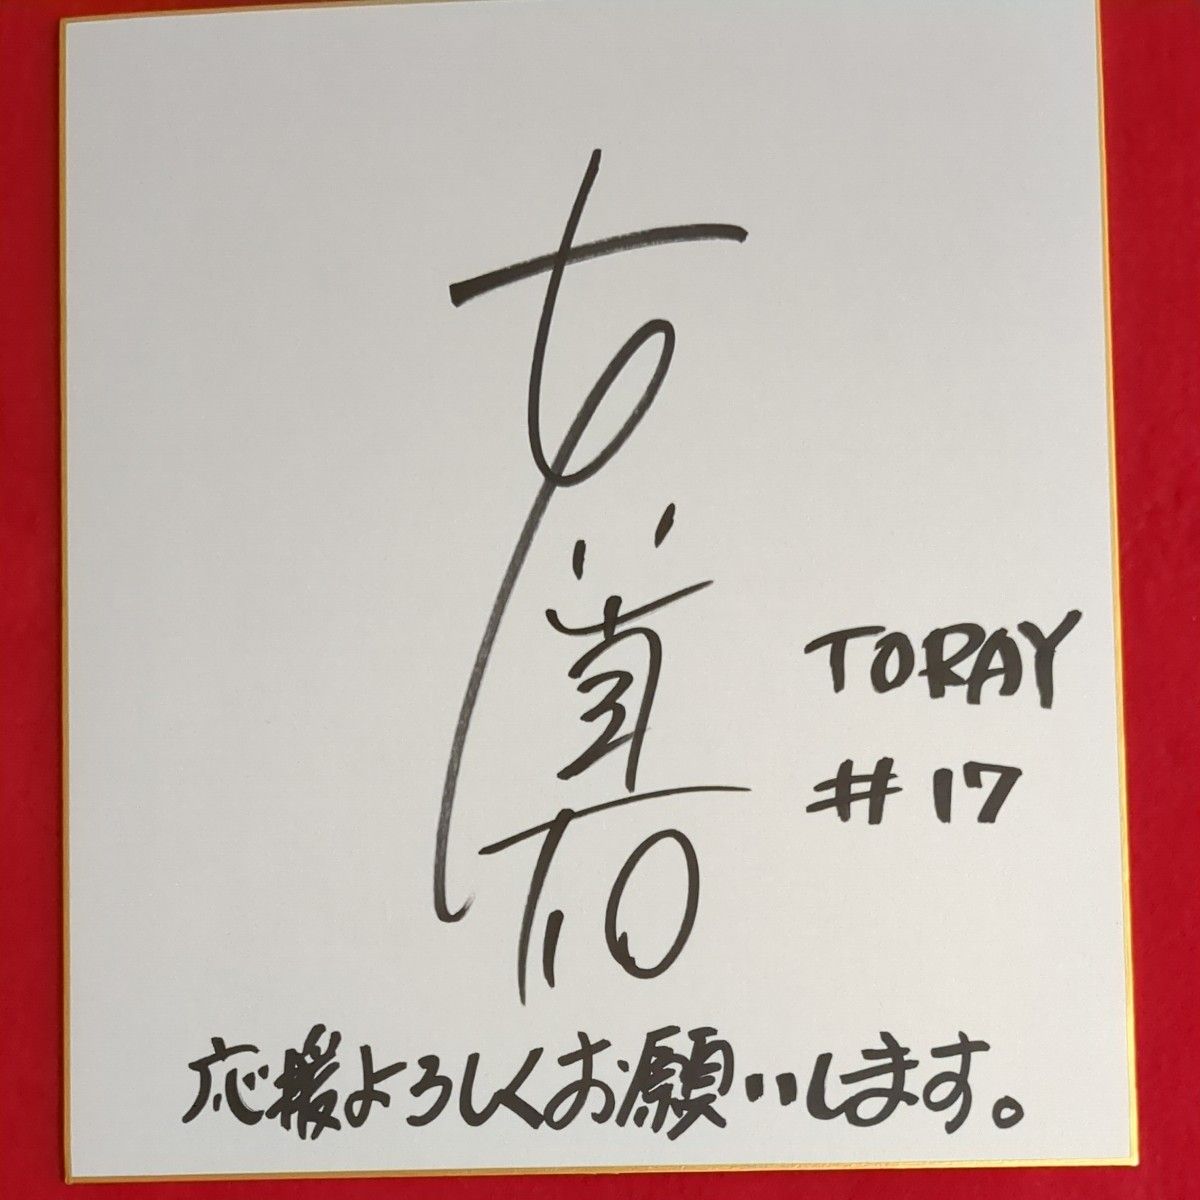 TORAY
#17
応援よろしくお願いします。